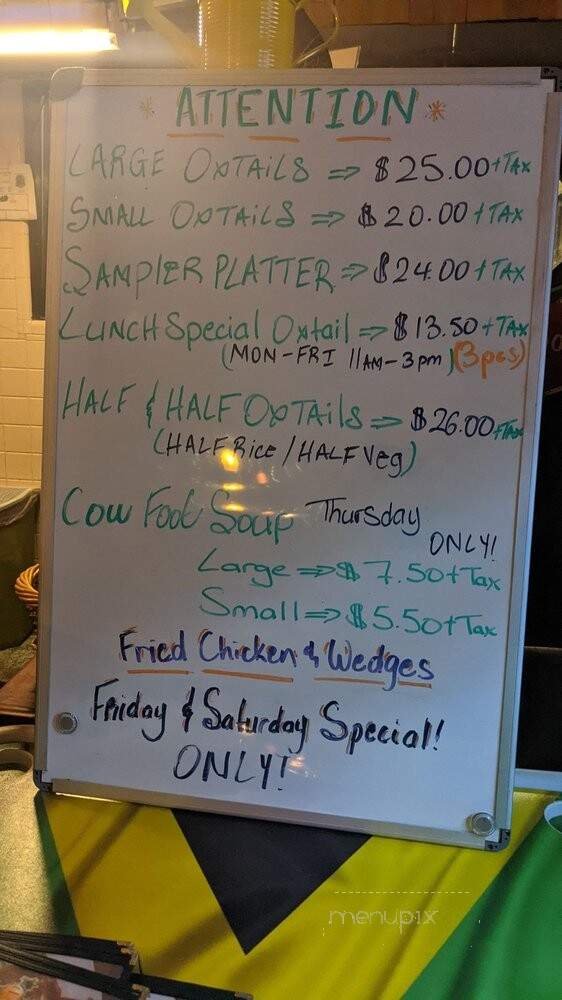 * ATTENTION *
LARGE OXTAILS ⇒ $25.00 + TAX
SMALL OXTAILS ⇒ $20.00 + TAX
SAMPLER PLATTER ⇒ $24.00 + TAX
LUNCH Special Oxtail ⇒ $13.50 + TAX
(MON-FRI 11AM-3pm) (3pcs)
HALF & HALF OXTAILS ⇒ $26.00 + TAX
(HALF Rice / HALF Veg)
Cow Foot Soup Thursday
ONLY!
Large ⇒ $7.50 + Tax
Small ⇒ $5.50 + Tax
Fried Chicken & Wedges
Friday & Saturday Special!
ONLY!
menupix